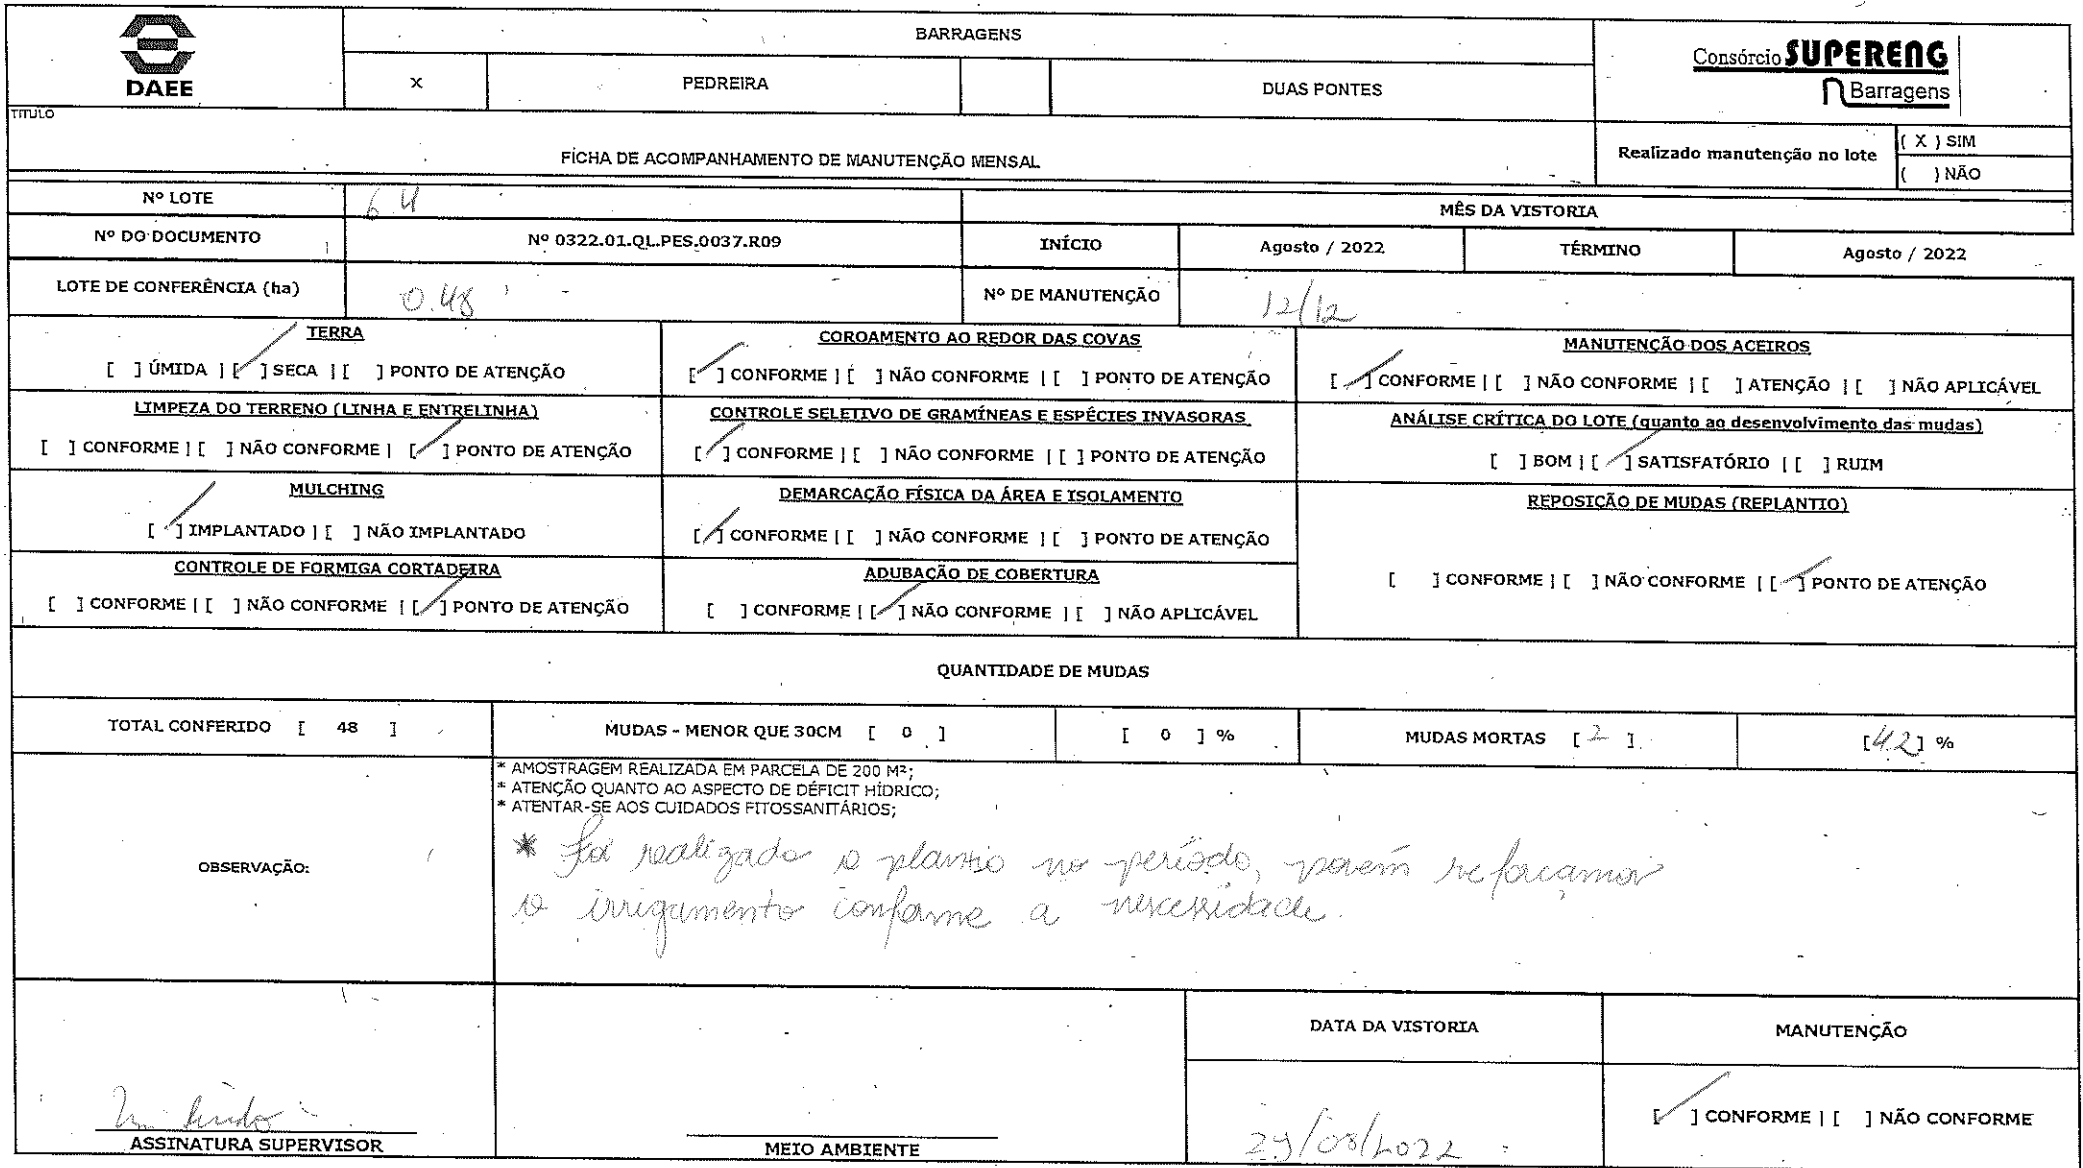 DAEE
BARRAGENS
X PEDREIRA DUAS PONTES
Consórcio SUPERENG
Barragens
TITULO
FICHA DE ACOMPANHAMENTO DE MANUTENÇÃO MENSAL
Realizado manutenção no lote
( X ) SIM
( ) NÃO
Nº LOTE 6.4
MÊS DA VISTORIA
Nº DO DOCUMENTO Nº 0322.01.QL.PES.0037.R09 INÍCIO Agosto / 2022 TÉRMINO Agosto / 2022
LOTE DE CONFERÊNCIA (ha) 0.48 Nº DE MANUTENÇÃO 12/12
TERRA
[ ] ÚMIDA | [/] SECA | [ ] PONTO DE ATENÇÃO
COROAMENTO AO REDOR DAS COVAS
[/] CONFORME | [ ] NÃO CONFORME | [ ] PONTO DE ATENÇÃO
MANUTENÇÃO DOS ACEIROS
[/] CONFORME | [ ] NÃO CONFORME | [ ] ATENÇÃO | [ ] NÃO APLICÁVEL
LIMPEZA DO TERRENO (LINHA E ENTRELINHA)
[ ] CONFORME | [ ] NÃO CONFORME | [/] PONTO DE ATENÇÃO
CONTROLE SELETIVO DE GRAMÍNEAS E ESPÉCIES INVASORAS
[/] CONFORME | [ ] NÃO CONFORME | [ ] PONTO DE ATENÇÃO
ANÁLISE CRÍTICA DO LOTE (quanto ao desenvolvimento das mudas)
[ ] BOM | [/] SATISFATÓRIO | [ ] RUIM
MULCHING
[/] IMPLANTADO | [ ] NÃO IMPLANTADO
DEMARCAÇÃO FÍSICA DA ÁREA E ISOLAMENTO
[/] CONFORME | [ ] NÃO CONFORME | [ ] PONTO DE ATENÇÃO
REPOSIÇÃO DE MUDAS (REPLANTIO)
[ ] CONFORME | [ ] NÃO CONFORME | [/] PONTO DE ATENÇÃO
CONTROLE DE FORMIGA CORTADEIRA
[ ] CONFORME | [ ] NÃO CONFORME | [/] PONTO DE ATENÇÃO
ADUBAÇÃO DE COBERTURA
[ ] CONFORME | [/] NÃO CONFORME | [ ] NÃO APLICÁVEL
QUANTIDADE DE MUDAS
TOTAL CONFERIDO [ 48 ] MUDAS - MENOR QUE 30CM [ 0 ] [ 0 ] % MUDAS MORTAS [ 2 ] [4.2] %
OBSERVAÇÃO:
* AMOSTRAGEM REALIZADA EM PARCELA DE 200 M²;
* ATENÇÃO QUANTO AO ASPECTO DE DÉFICIT HÍDRICO;
* ATENTAR-SE AOS CUIDADOS FITOSSANITÁRIOS;
* Foi realizado o plantio no período, porém
o irrigamento conforme a necessidade.
ASSINATURA SUPERVISOR
MEIO AMBIENTE
DATA DA VISTORIA
29/08/2022
MANUTENÇÃO
[/] CONFORME | [ ] NÃO CONFORME